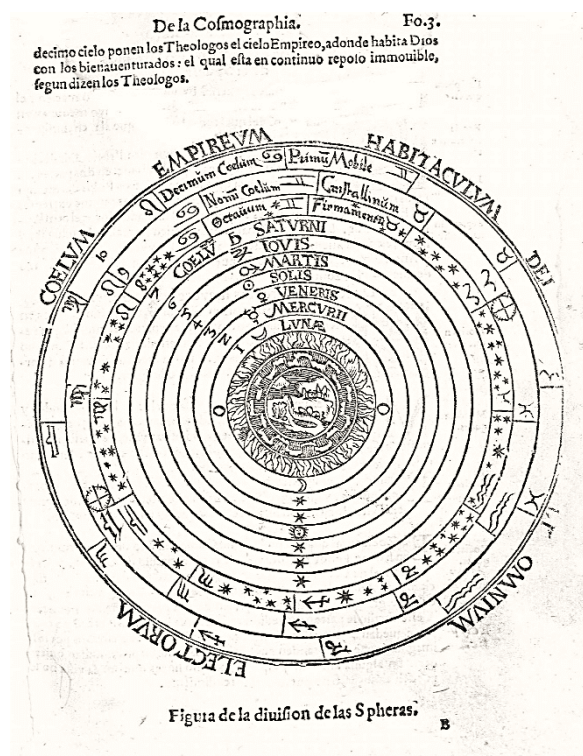 De la Coſmographia. Fo.3.
decimo cielo ponen los Theologos el cielo Empireo, adonde habita Dios
con los bienauenturados: el qual eſta en continuo repoſo immouible,
ſegun dizen los Theologos.
COELVM EMPIREVM HABITACVLVM DEI OMNIVM ELECTORVM
Decimũm Coelum ♋ Primũ Mobile ♊
Nonũ Coelum ♊ Criſtallinum
Octauum ♊ Firmamentũ ♉
COELṼ ♄ SATVRNI
♃ IOVIS
♂ MARTIS
☉ SOLIS
♀ VENERIS
☿ MERCVRII
☽ LVNÆ
7 6 5 4 3 2 1
Figura de la diuiſion de las Spheras.
B